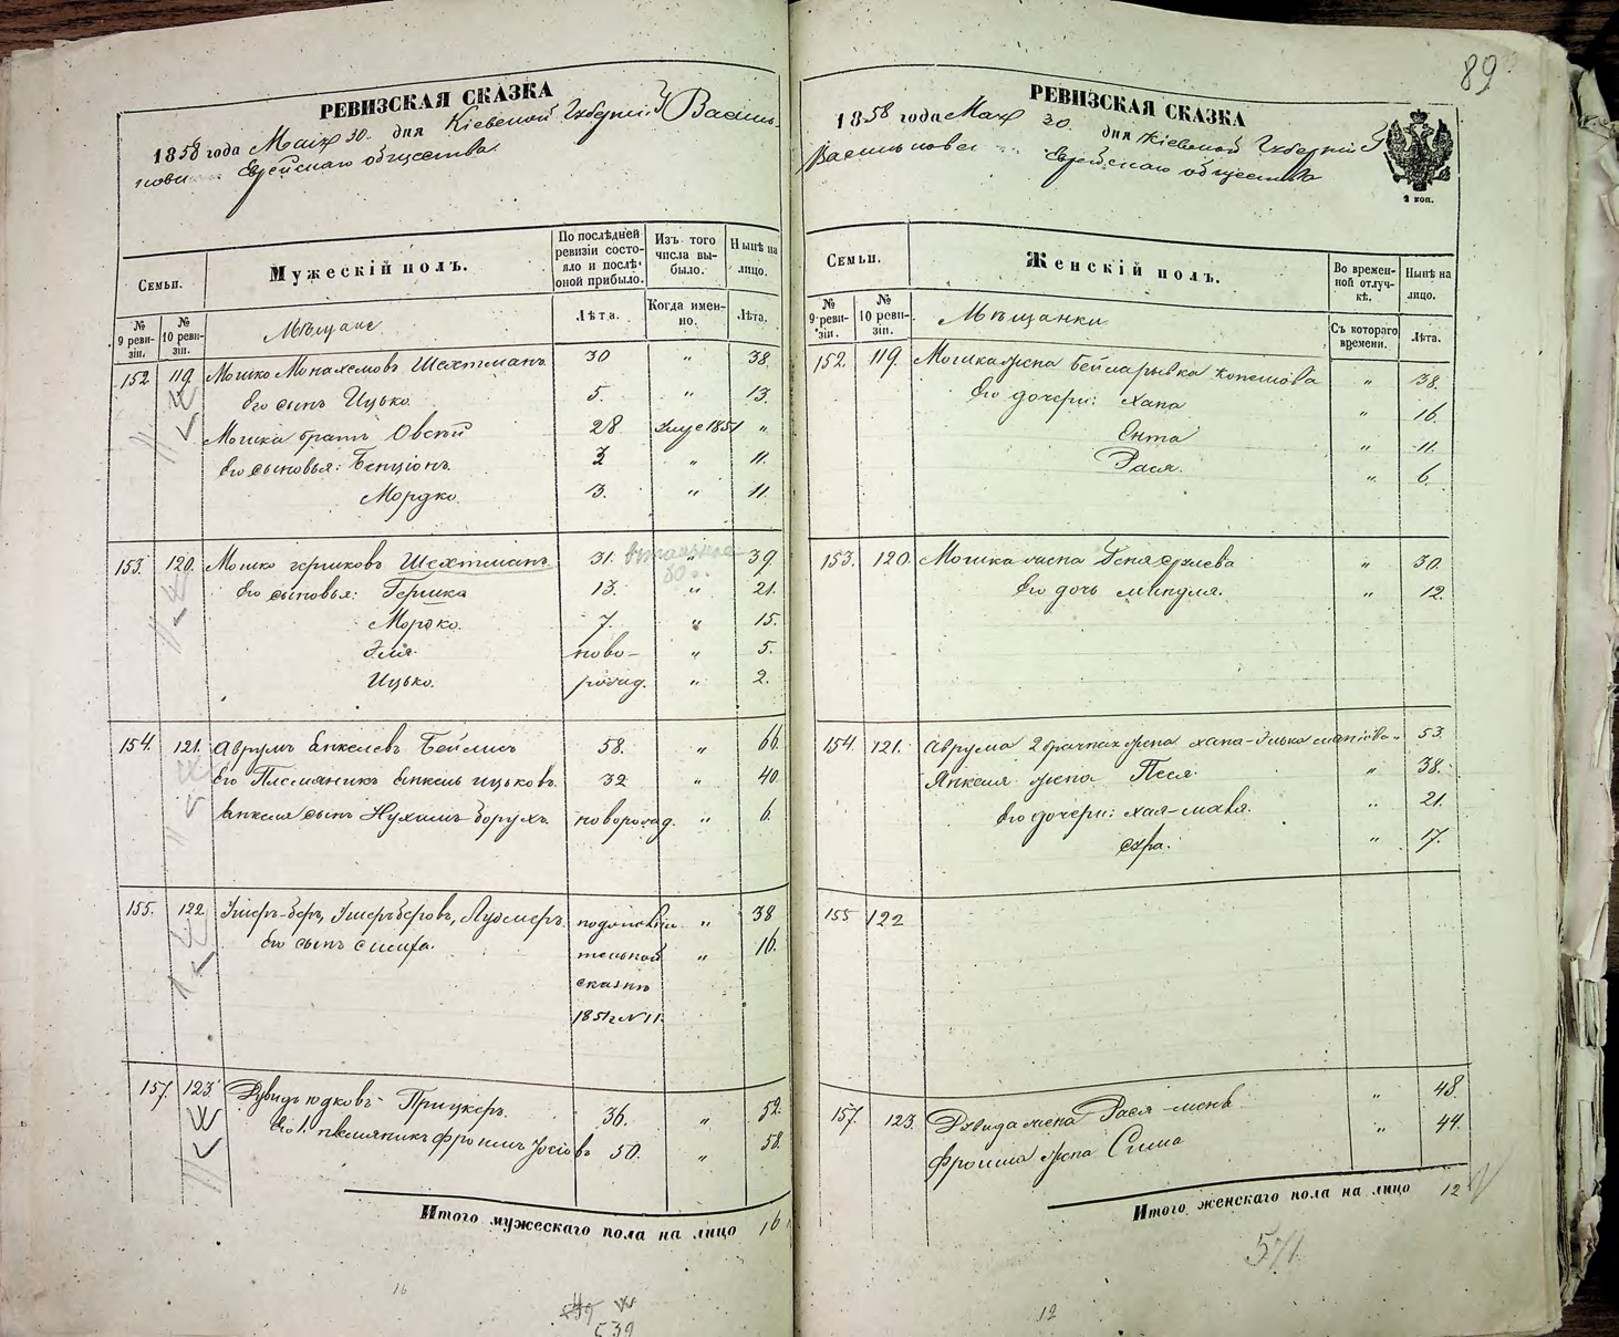 РЕВИЗСКАЯ СКАЗКА
1858 года Маія 30 дня Кіевской Губерніи У Василь-
кови Еврейскаго общества
Семьи.
Мужескій полъ.
По послѣдней ревизіи состояло и послѣ оной прибыло.
Изъ того числа выбыло.
Нынѣ на лицо.
№ 9 ревизіи.
№ 10 ревизіи.
Мѣщане
Лѣта.
Когда именно.
Лѣта.
152 119 Мошко Монахемовъ Шехтманъ 30 " 38.
Его сынъ Ицько. 5. " 13.
Мошка братъ Овсѣй 28 Умре 1851 "
Его сыновья: Бенціонъ. 3 " 11.
Мордко. 3. " 11
153. 120. Мошко Гершковъ Шехтманъ. 31. " 39
Его сыновья: Гершко 13. " 21.
Мордко. 7. " 15.
Эля. ново- " 5.
Ицько. рожд. " 2.
154. 121. Аврумъ Янкелевъ Бейлисъ 58. " 66.
Его Племяникъ Янкель Ицьковъ. 32 " 40
Янкеля сынъ Нухимъ-Борухъ. новорожд. " 6.
155. 122 Ушеръ-Беръ, Ушеръ Беровъ, подополни " 38
Его сынъ Сисиха. тельной " 16.
сказкѣ
1851 г. N 11.
157. 123. Дувидъ Юдковъ Прицкеръ. 36. " 52.
Его 1. племяникъ Фроимъ Іосіовъ 50. " 58.
Итого мужескаго пола на лицо 16
16
539
РЕВИЗСКАЯ СКАЗКА
89
1858 года Мая 30. дня Кіевской Губерніи У
Васильковси Еврейскаго общества
2 коп.
Семьи.
Женскій полъ.
Во временной отлучкѣ.
Нынѣ на лицо.
№ 9 ревизіи.
№ 10 ревизіи.
Мѣщанки
Съ котораго времени.
Лѣта.
152. 119. Мошка жена Бейларывка " 38.
Его дочери: Хана " 16.
Ента " 11.
Рася. " 6.
153. 120. Мошка жена Беня " 30.
Его дочь Миндля. " 12.
154. 121. Аврума 2 брачная жена Хана- " 53.
Янкеля жена Песя " 38.
Его дочери: Хая- " 21.
Сура. " 17.
155 122
157. 123. Дувида жена Рася " 48.
Фроима жена Сима " 44.
Итого женскаго пола на лицо 12
571
12